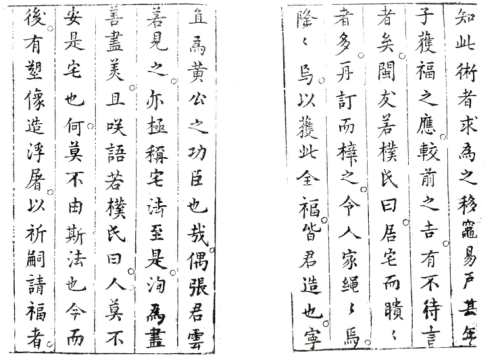 知此術者求為之移竈易戸甚年
子獲福之應較前之吉有不待言
者矣閩友若樸氏曰居宅而瞶〻
者多再訂而梓之令人家繩〻焉
隆〻焉以獲此全福皆君造也寧
且為黃公之功臣也哉偶張君雲
若見之亦極稱宅法至是洵為盡
善盡美且咲語若樸氏曰人莫不
安是宅也何莫不由斯法也今而
後有塑像造浮屠以祈嗣請福者